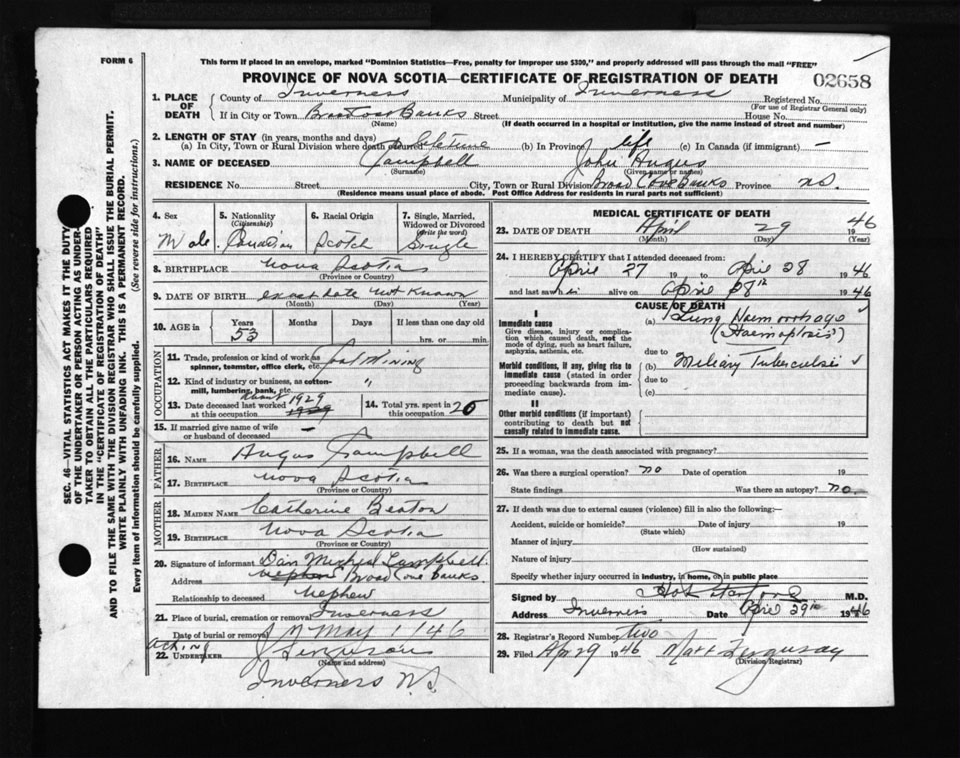 FORM 6
This form if placed in an envelope, marked "Dominion Statistics—Free, penalty for improper use $300," and properly addressed will pass through the mail "FREE"
PROVINCE OF NOVA SCOTIA—CERTIFICATE OF REGISTRATION OF DEATH
02658
1. PLACE OF DEATH
County of Inverness Municipality of Inverness Registered No.
(For use of Registrar General only)
If in City or Town Broad Cove Banks Street House No.
(Name) (If death occurred in a hospital or institution, give the name instead of street and number)
2. LENGTH OF STAY (in years, months and days)
(a) In City, Town or Rural Division where death occurred Lifetime (b) In Province life (c) In Canada (if immigrant) —
3. NAME OF DECEASED Campbell John Angus
(Surname) (Given name or names)
RESIDENCE No. Street City, Town or Rural Division Broad Cove Banks Province N.S.
(Residence means usual place of abode. Post Office Address for residents in rural parts not sufficient)
4. Sex
Male
5. Nationality
(Citizenship)
Canadian
6. Racial Origin
Scotch
7. Single, Married, Widowed or Divorced
(Write the word)
Single
8. BIRTHPLACE Nova Scotia
(Province or Country)
9. DATE OF BIRTH exact date not known
(Month) (Day) (Year)
10. AGE in Years Months Days If less than one day old
53 hrs. or min.
OCCUPATION
11. Trade, profession or kind of work as spinner, teamster, office clerk, etc. Coal Mining
12. Kind of industry or business, as cotton-mill, lumbering, bank, etc. "
13. Date deceased last worked at this occupation about 1929
14. Total yrs. spent in this occupation 25
15. If married give name of wife or husband of deceased —
FATHER
16. NAME Angus Campbell
17. BIRTHPLACE Nova Scotia
(Province or Country)
MOTHER
18. MAIDEN NAME Catherine Beaton
19. BIRTHPLACE Nova Scotia
(Province or Country)
20. Signature of informant Dan Michael Campbell
Address nephew Broad Cove Banks.
Relationship to deceased Nephew
21. Place of burial, cremation or removal Inverness
Date of burial or removal May 1 /46
acting
22. UNDERTAKER Ferguson
(Name and address)
Inverness N.S.
MEDICAL CERTIFICATE OF DEATH
23. DATE OF DEATH April 29 1946
(Month) (Day) (Year)
24. I HEREBY CERTIFY that I attended deceased from:
April 27 19 to April 28 1946
and last saw h im alive on April 28th 1946
CAUSE OF DEATH
I
Immediate cause
Give disease, injury or complication which caused death, not the mode of dying, such as heart failure, asphyxia, asthenia, etc.
(a) Lung Haemorrhage
(Haemoptysis)
due to
Morbid conditions, if any, giving rise to immediate cause (stated in order proceeding backwards from immediate cause).
(b) Miliary Tuberculosis
due to
(c)
II
Other morbid conditions (if important) contributing to death but not causally related to immediate cause.
25. If a woman, was the death associated with pregnancy?
26. Was there a surgical operation? no Date of operation 19
State findings Was there an autopsy? no.
27. If death was due to external causes (violence) fill in also the following:—
Accident, suicide or homicide? Date of injury 19
(State which)
Manner of injury
(How sustained)
Nature of injury
Specify whether injury occurred in industry, in home, or in public place
Signed by M.D.
Address Inverness Date April 29th 1946
28. Registrar's Record Number two
29. Filed Apr 29 1946
(Division Registrar)
SEC. 46—VITAL STATISTICS ACT MAKES IT THE DUTY
OF THE UNDERTAKER OR PERSON ACTING AS UNDER-
TAKER TO OBTAIN ALL THE PARTICULARS REQUIRED
IN THE "CERTIFICATE OF REGISTRATION OF DEATH"
AND TO FILE THE SAME WITH THE DIVISION REGISTRAR WHO SHALL ISSUE THE BURIAL PERMIT.
WRITE PLAINLY WITH UNFADING INK. THIS IS A PERMANENT RECORD.
Every item of information should be carefully supplied. (See reverse side for instructions.)